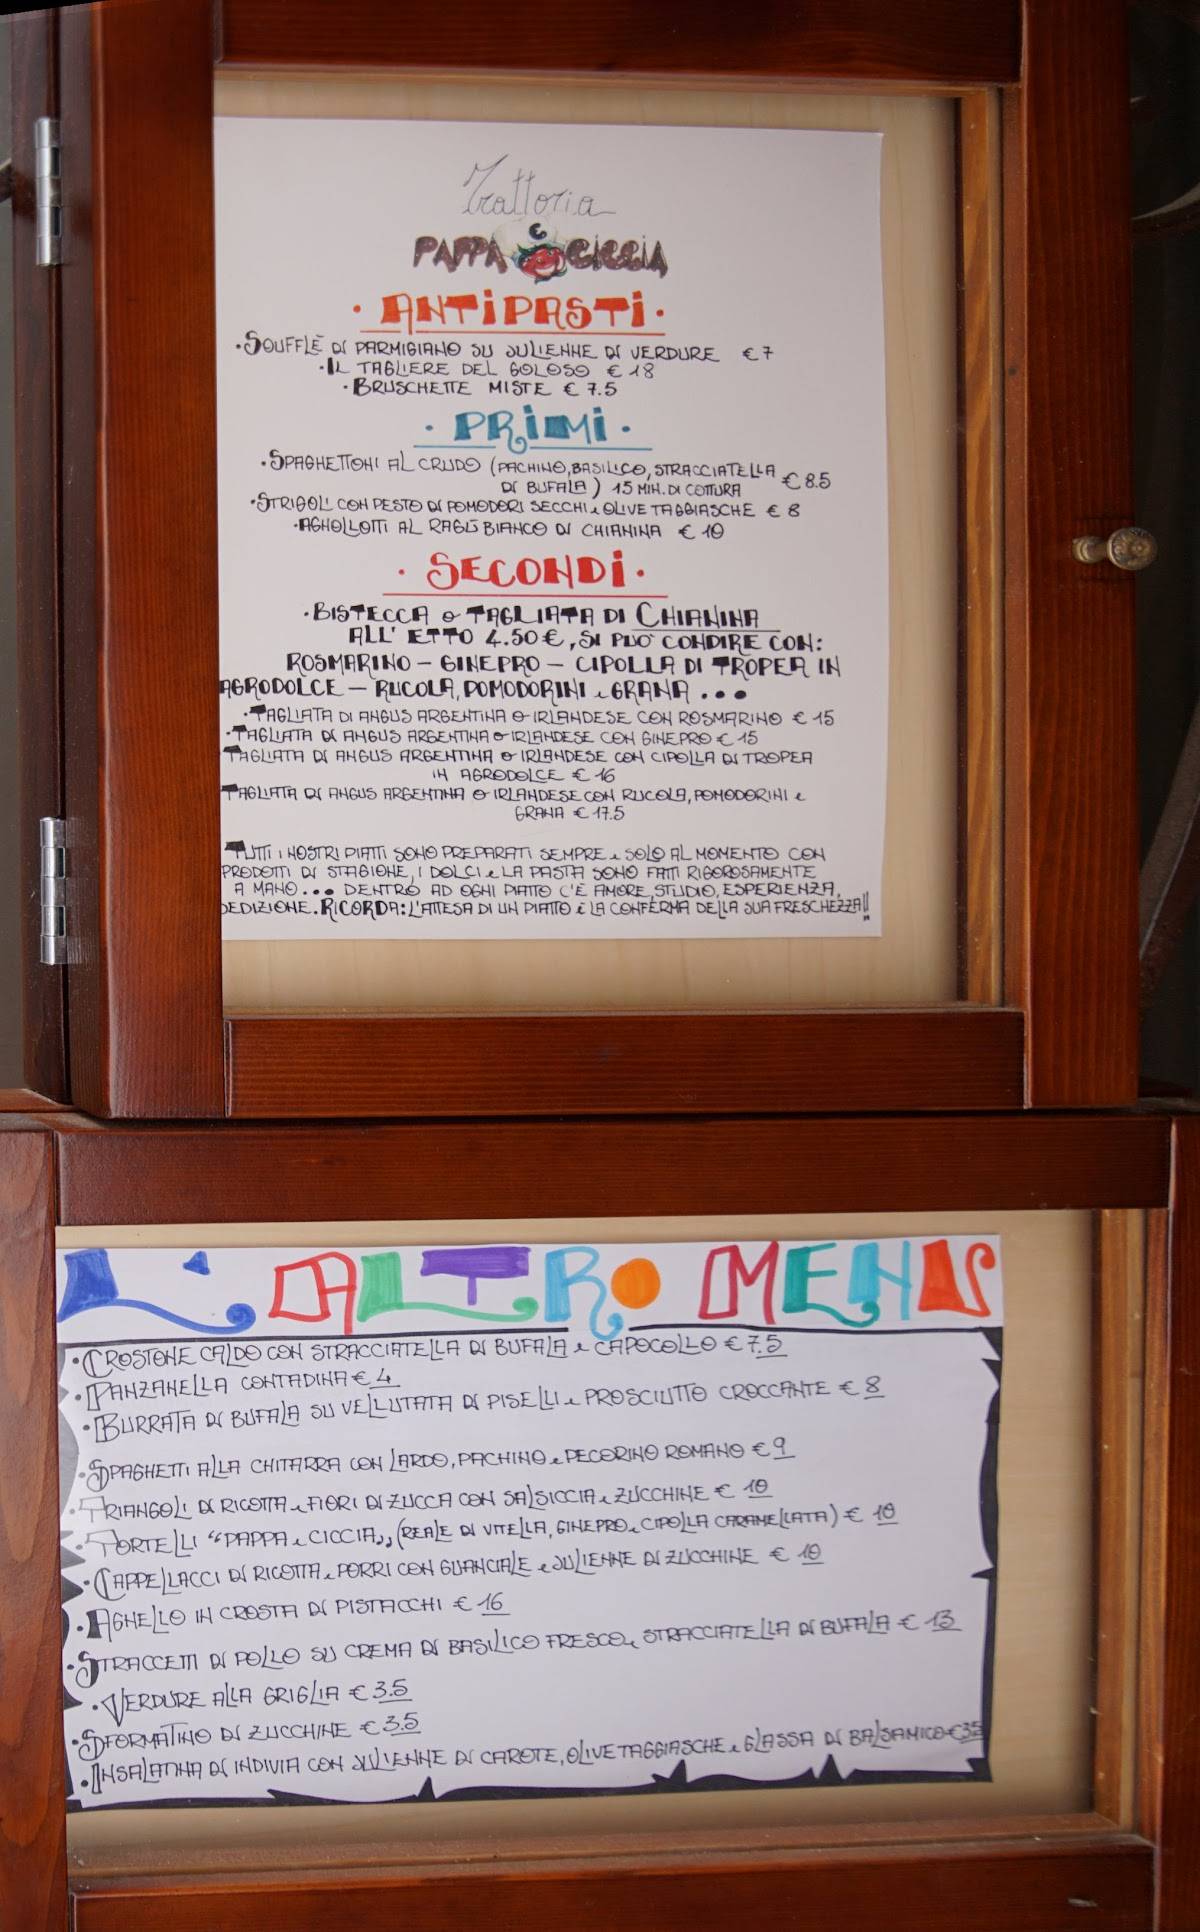 Trattoria
PAPPA E CICCIA
· ANTIPASTI ·
· SOUFFLÈ DI PARMIGIANO SU JULIENNE DI VERDURE € 7
· IL TAGLIERE DEL GOLOSO € 18
· BRUSCHETTE MISTE € 7.5
· PRIMI ·
· SPAGHETTONI AL CRUDO (PACHINO, BASILICO, STRACCIATELLA
DI BUFALA) 15 MIN. DI COTTURA € 8.5
· STRIGOLI CON PESTO DI POMODORI SECCHI e OLIVE TAGGIASCHE € 8
· AGNOLLOTTI AL RAGÙ BIANCO DI CHIANINA € 10
· SECONDI ·
· BISTECCA o TAGLIATA DI CHIANINA
ALL' ETTO 4.50 €, SI PUÒ CONDIRE CON:
ROSMARINO – GINEPRO – CIPOLLA DI TROPEA IN
AGRODOLCE – RUCOLA, POMODORINI e GRANA ...
· TAGLIATA DI ANGUS ARGENTINA O IRLANDESE CON ROSMARINO € 15
· TAGLIATA DI ANGUS ARGENTINA O IRLANDESE CON GINEPRO € 15
TAGLIATA DI ANGUS ARGENTINA O IRLANDESE CON CIPOLLA DI TROPEA
IN AGRODOLCE € 16
TAGLIATA DI ANGUS ARGENTINA O IRLANDESE CON RUCOLA, POMODORINI e
GRANA € 17.5
TUTTI I NOSTRI PIATTI SONO PREPARATI SEMPRE e SOLO AL MOMENTO CON
PRODOTTI DI STAGIONE, I DOLCI e LA PASTA SONO FATTI RIGOROSAMENTE
A MANO... DENTRO AD OGNI PIATTO C'È AMORE, STUDIO, ESPERIENZA,
DEDIZIONE. RICORDA: L'ATTESA DI UN PIATTO È LA CONFERMA DELLA SUA FRESCHEZZA!!
L'ALTRO MENÙ
· CROSTONE CALDO CON STRACCIATELLA DI BUFALA e CAPOCOLLO € 7.5
· PANZANELLA CONTADINA € 4
· BURRATA DI BUFALA SU VELLUTATA DI PISELLI e PROSCIUTTO CROCCANTE € 8
· SPAGHETTI ALLA CHITARRA CON LARDO, PACHINO e PECORINO ROMANO € 9
· TRIANGOLI DI RICOTTA e FIORI DI ZUCCA CON SALSICCIA e ZUCCHINE € 10
· TORTELLI "PAPPA e CICCIA" (REALE DI VITELLA, GINEPRO e CIPOLLA CARAMELLATA) € 10
· CAPPELLACCI DI RICOTTA e PORRI CON GUANCIALE e JULIENNE DI ZUCCHINE € 10
· AGNELLO IN CROSTA DI PISTACCHI € 16
· STRACCETTI DI POLLO SU CREMA DI BASILICO FRESCO e STRACCIATELLA DI BUFALA € 13
· VERDURE ALLA GRIGLIA € 3.5
· SFORMATINO DI ZUCCHINE € 3.5
· INSALATINA DI INDIVIA CON JULIENNE DI CAROTE, OLIVE TAGGIASCHE e GLASSA DI BALSAMICO € 3.5